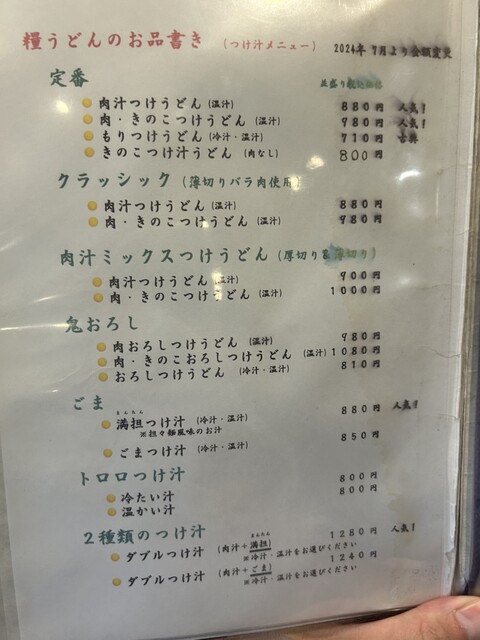 糧うどんのお品書き (つけ汁メニュー) 2024年 7月より金額変更
定番 並盛り税込価格
肉汁つけうどん (温汁) 880円 人気!
肉・きのこつけうどん (温汁) 980円 人気!
もりつけうどん (冷汁・温汁) 710円 古典
きのこつけ汁うどん (肉なし) 800円
クラッシック (薄切りバラ肉使用)
肉汁つけうどん (温汁) 880円
肉・きのこつけうどん (温汁) 980円
肉汁ミックスつけうどん (厚切り&薄切り)
肉汁つけうどん (温汁) 900円
肉・きのこつけうどん (温汁) 1000円
鬼おろし
肉おろしつけうどん (温汁) 980円
肉・きのこおろしつけうどん (温汁) 1080円
おろしつけうどん (冷汁・温汁) 810円
ごま
まんたん
満担つけ汁 (冷汁・温汁) 880円 人気!
※担々麺風味のお汁
ごまつけ汁 (冷汁・温汁) 850円
トロロつけ汁
冷たい汁 800円
温かい汁 800円
2種類のつけ汁
まんたん
ダブルつけ汁 (肉汁+満担) 1280円 人気!
※冷汁・温汁をお選びください
ダブルつけ汁 (肉汁+ごま) 1240円
※冷汁・温汁をお選びください